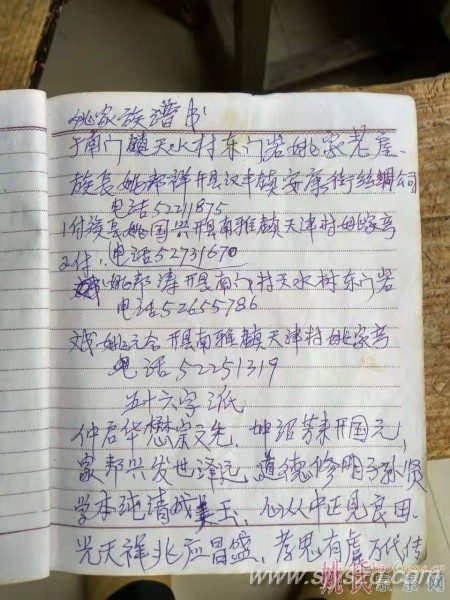 姚家族谱书
于南门镇天水村东门岩姚家老屋、
族长姚邦祥开县汉丰镇安康街丝绸公司
电话52211875
1付族长姚国兴开县南雅镇天津村姚家
2付 电话52731670
姚邦涛开县南门村天水村东门岩
电话52655786
姚元合开县南雅镇天津村姚家
电话52251319
五十六字派
仲启华懋宗文先、坤绍芳来开国元、
家邦兴发世泽远、道德修明子孙贤
学本纯清成美玉、心从中正见良田、
光天祥兆应昌盛、孝思有虞万代传
姚氏宗亲网